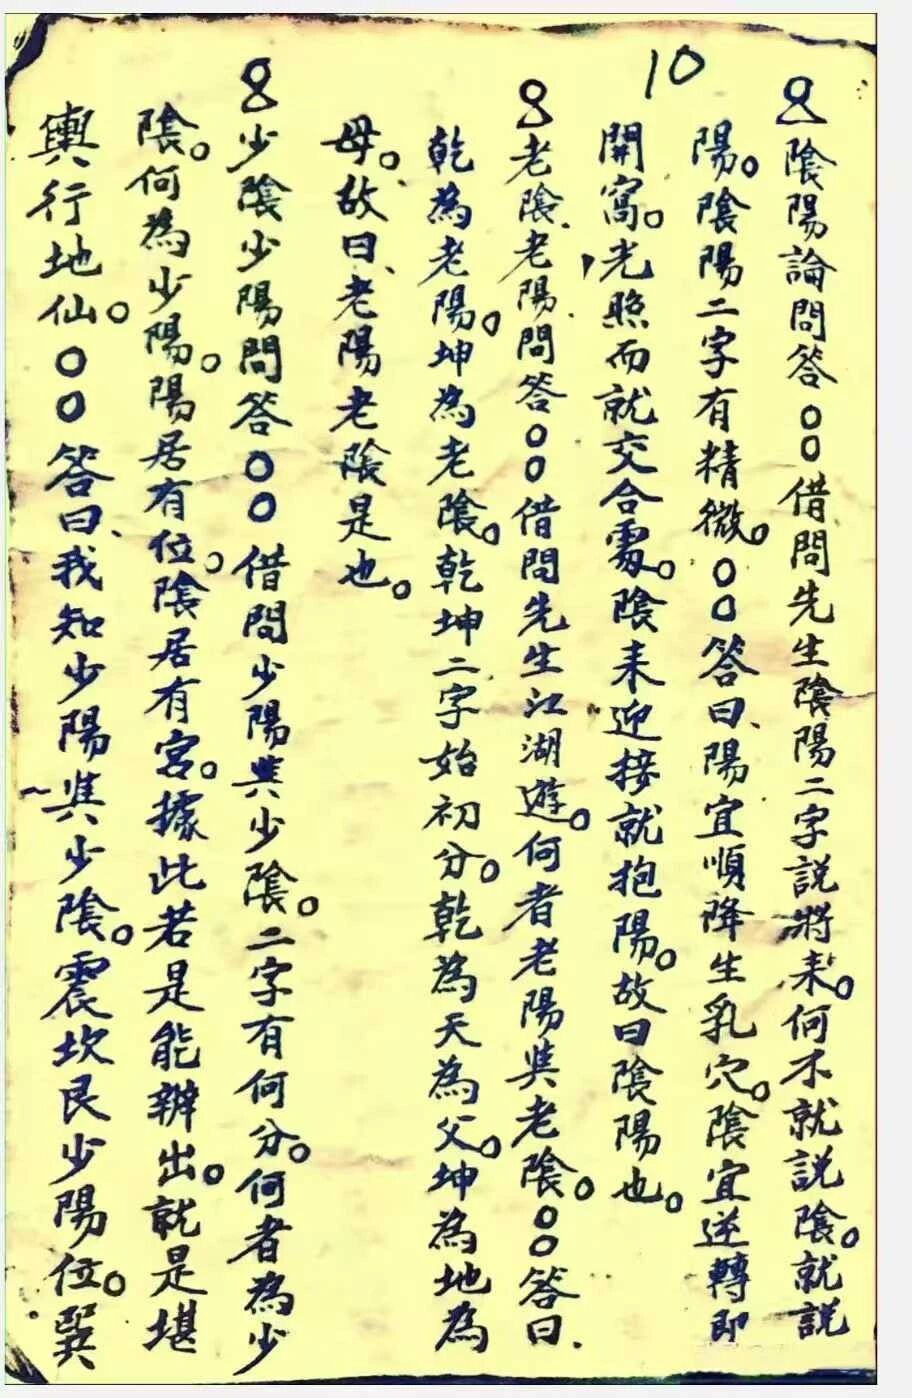 10
陰陽論問答。。借問先生陰陽二字說將来。何不就説陰。就説
陽。陰陽二字有精微。。。答曰、陽宜順降生乳穴。陰宜逆轉即
開窩。光照而就交合處。陰来迎接就抱陽。故曰陰陽也。
老陰、老陽問答。。借問先生江湖遊。何者老陽與老陰。。。答曰、
乾為老陽。坤為老陰。乾坤二字始初分。乾為天為父。坤為地為
母。故曰、老陽老陰是也。
少陰少陽問答。。借問少陽與少陰。二字有何分。何者為少
陰。何為少陽。陽居有位。陰居有宮。據此若是能辦出。就是堪
輿行地仙。。。答曰、我知少陽與少陰。震坎艮少陽位。巽